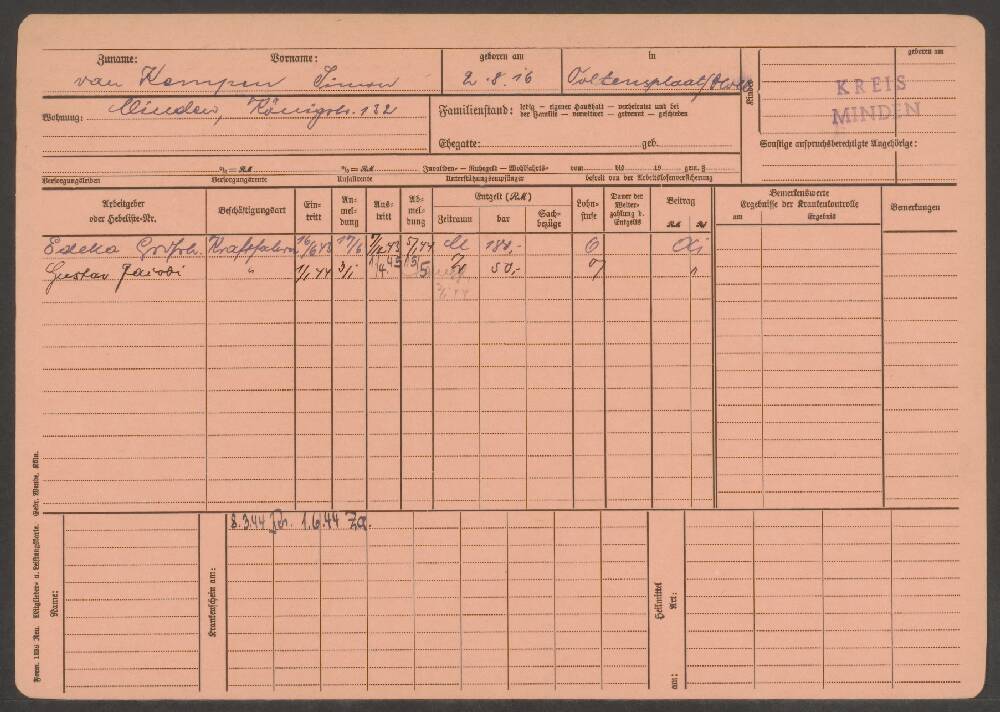 Zuname: Vorname: geboren am in
van Kempen Simon 2.8.16
Kinder
geboren am
KREIS
MINDEN
Wohnung: Minden, Königstr. 132
Familienstand: ledig — eigener Haushalt — verheiratet und bei
der Familie — verwitwet — getrennt — geschieden
Ehegatte: geb.
Sonstige anspruchsberechtigte Angehörige:
% = RM % = RM Invaliden- — Ruhegeld — Wohlfahrts- vom bis 19 gem. §
Versorgungsleiden Versorgungsrente Unfallrente Unterstützungsempfänger befreit von der Arbeitslosenversicherung
Arbeitgeber
oder Hebeliste-Nr.
Beschäftigungsart
Ein-
tritt
An-
mel-
dung
Aus-
tritt
Ab-
mel-
dung
Entgelt (RM)
Zeitraum bar Sach-
bezüge
Lohn-
stufe
Dauer der
Weiter-
zahlung d.
Entgelts
Beitrag
RM Rpf
Bemerkenswerte
Ergebnisse der Krankenkontrolle
am Ergebnis
Bemerkungen
Edeka Großh. Kraftfahrer 16/6 43 17/6 43 5/1 44 M 180,- 6
Gustav 1/1 44 3/1 1/4 45 15/5 50,- 7 "
8.3.44 1.6.44
Name:
Krankenschein am:
Heilmittel
Art:
am:
Form. 1136 Neu. Mitglieder- u. Leistungskarte. Gebr. Wande, Köln.